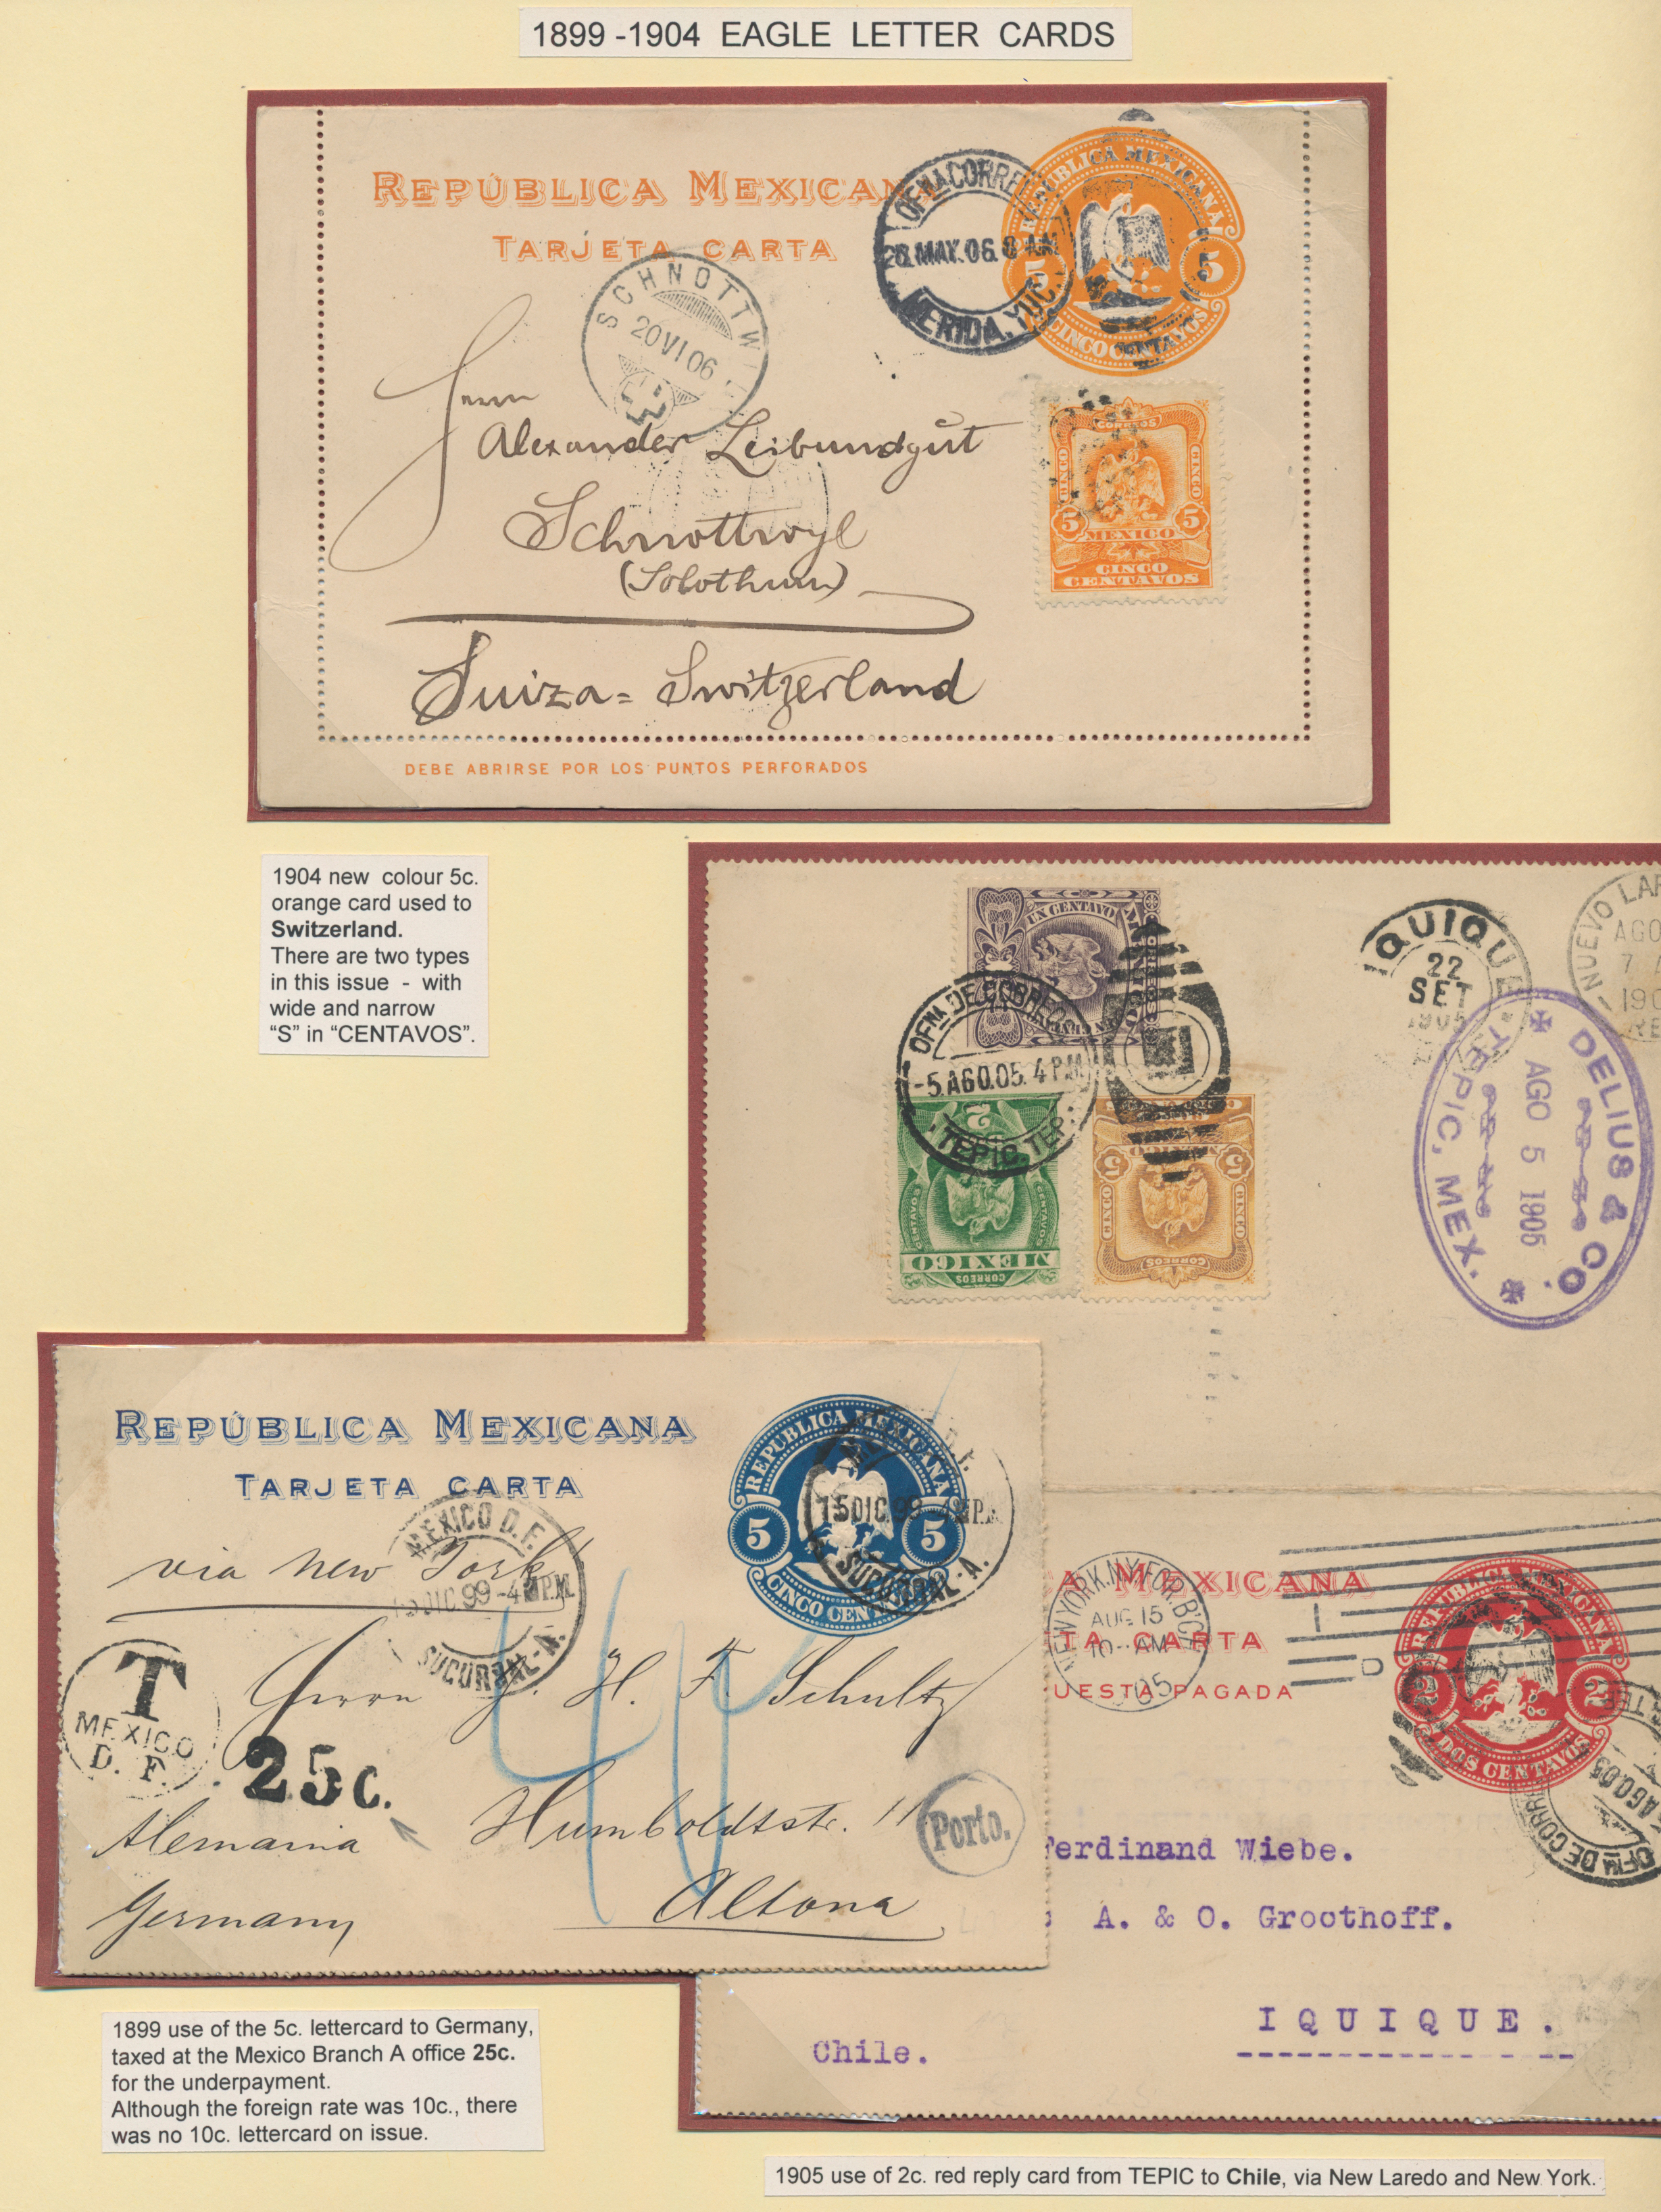 1899 -1904 EAGLE LETTER CARDS
REPÚBLICA MEXICANA
TARJETA CARTA
OFNA CORRE
28. MAY. 06. 8 AM
MERIDA, YUC.
REPUBLICA MEXICANA
5 5
CINCO CENTAVOS
SCHNOTTWIL
20 VI 06
Herrn
Alexander Leibundgut
Schnottwyl
(Solothurn)
Suiza = Switzerland
CORREOS
CINCO CINCO
5 5
MEXICO
CINCO
CENTAVOS
DEBE ABRIRSE POR LOS PUNTOS PERFORADOS
1904 new colour 5c.
orange card used to
Switzerland.
There are two types
in this issue - with
wide and narrow
“S” in “CENTAVOS”.
UN CENTAVO
OFNA DE CORREOS
-5. AGO. 05. 4 P.M.
TEPIC, TEP.
2
CENTAVOS CENTAVOS
MEXICO
CORREOS
MEXICO
5 5
CINCO CINCO
CORREOS
IQUIQUE
22
SET
1905
NUEVO LAR
AGO
7 A
190
RE
DELIUS & CO.
AGO 5 1905
TEPIC, MEX.
REPÚBLICA MEXICANA
TARJETA CARTA
REPUBLICA MEXICANA
5 5
CINCO CENT
15 DIC. 99 - 4 P.M.
SUCURSAL-A.
MEXICO D.F.
15 DIC. 99 - 4 P.M.
SUCURSAL-A.
via New York
T
MEXICO
D. F.
25c.
Herrn J. H. F. Schultz
Humboldtstr. 11
Altona
Alemania
Germany
40
Porto.
A MEXICANA
TA CARTA
UESTA PAGADA
NEW YORK, N.Y. FOR. B'CH
AUG 15
10-AM
05
REPUBLICA MEXICANA
2 2
DOS CENTAVOS
OFNA DE CORRE
AGO. 05
Ferdinand Wiebe.
A. & O. Groothoff.
IQUIQUE.
Chile.
1899 use of the 5c. lettercard to Germany,
taxed at the Mexico Branch A office 25c.
for the underpayment.
Although the foreign rate was 10c., there
was no 10c. lettercard on issue.
1905 use of 2c. red reply card from TEPIC to Chile, via New Laredo and New York.